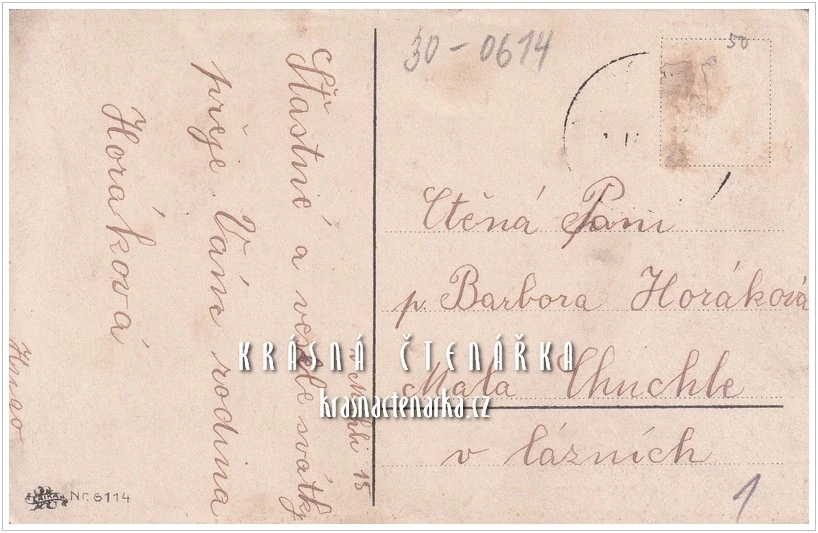 30-0614
50
Ctěná Paní
p. Barbora Horáková
Mala Chuchle
v lázních
1
Šťastné a veselé svátky
přeje Vám rodina
Horáková
15
KRÁSNÁ ČTENÁŘKA
krasnactenarka.cz
Nr. 6114